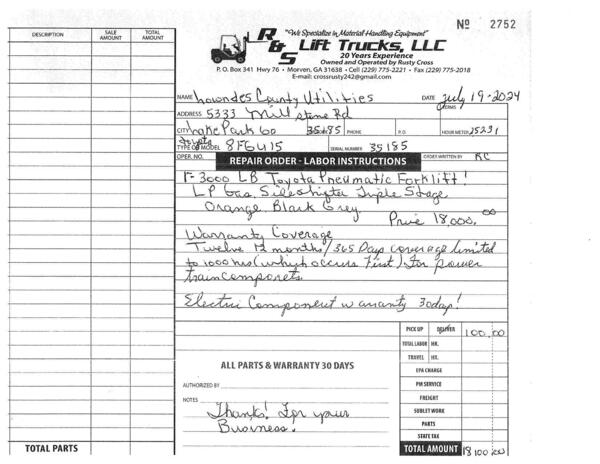 Nº 2752
DESCRIPTION SALE AMOUNT TOTAL AMOUNT
R&S Lift Trucks, LLC
"We Specialize in Material Handling Equipment"
20 Years Experience
Owned and Operated by Rusty Cross
P. O. Box 341 Hwy 76 • Morven, GA 31638 • Cell (229) 775-2221 • Fax (229) 775-2018
E-mail: crossrusty242@gmail.com
NAME Lowndes County Utilities DATE July 19-2024
ADDRESS 5333 Mill Stone Rd TERMS
CITY Lake Park Ga 35185 PHONE P.O. HOUR METER 25231
Toyota
TYPE OR MODEL 8FGU15 SERIAL NUMBER 35185
OPER. NO. REPAIR ORDER - LABOR INSTRUCTIONS ORDER WRITTEN BY RC
1- 3000 LB Toyota Pneumatic Forklift!
LP Gas, Sideshifter Triple Stage
Orange Black Grey. Price 18,000.00
Warranty Coverage
Twelve 12 months/365 Days coverage limited
to 1000 hrs (which occurs First) For power
train componets
Electric Component warranty 30day!
PICK UP DELIVER 100.00
TOTAL LABOR HR.
TRAVEL HR.
EPA CHARGE
PM SERVICE
FREIGHT
SUBLET WORK
PARTS
STATE TAX
TOTAL AMOUNT 18100.00
ALL PARTS & WARRANTY 30 DAYS
AUTHORIZED BY
NOTES
Thanks! For your
Business.
TOTAL PARTS